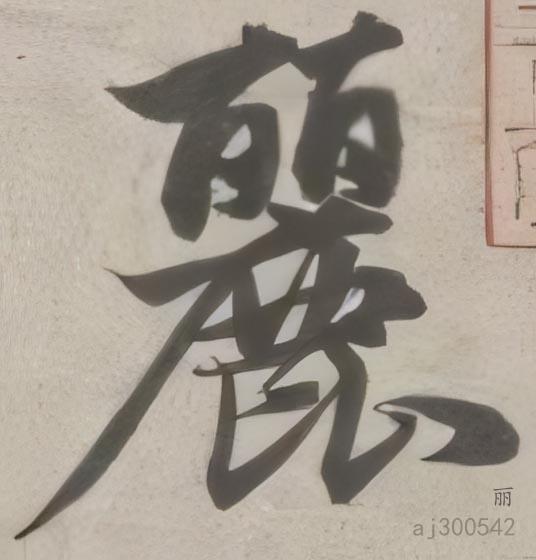 麗
丽
aj300542